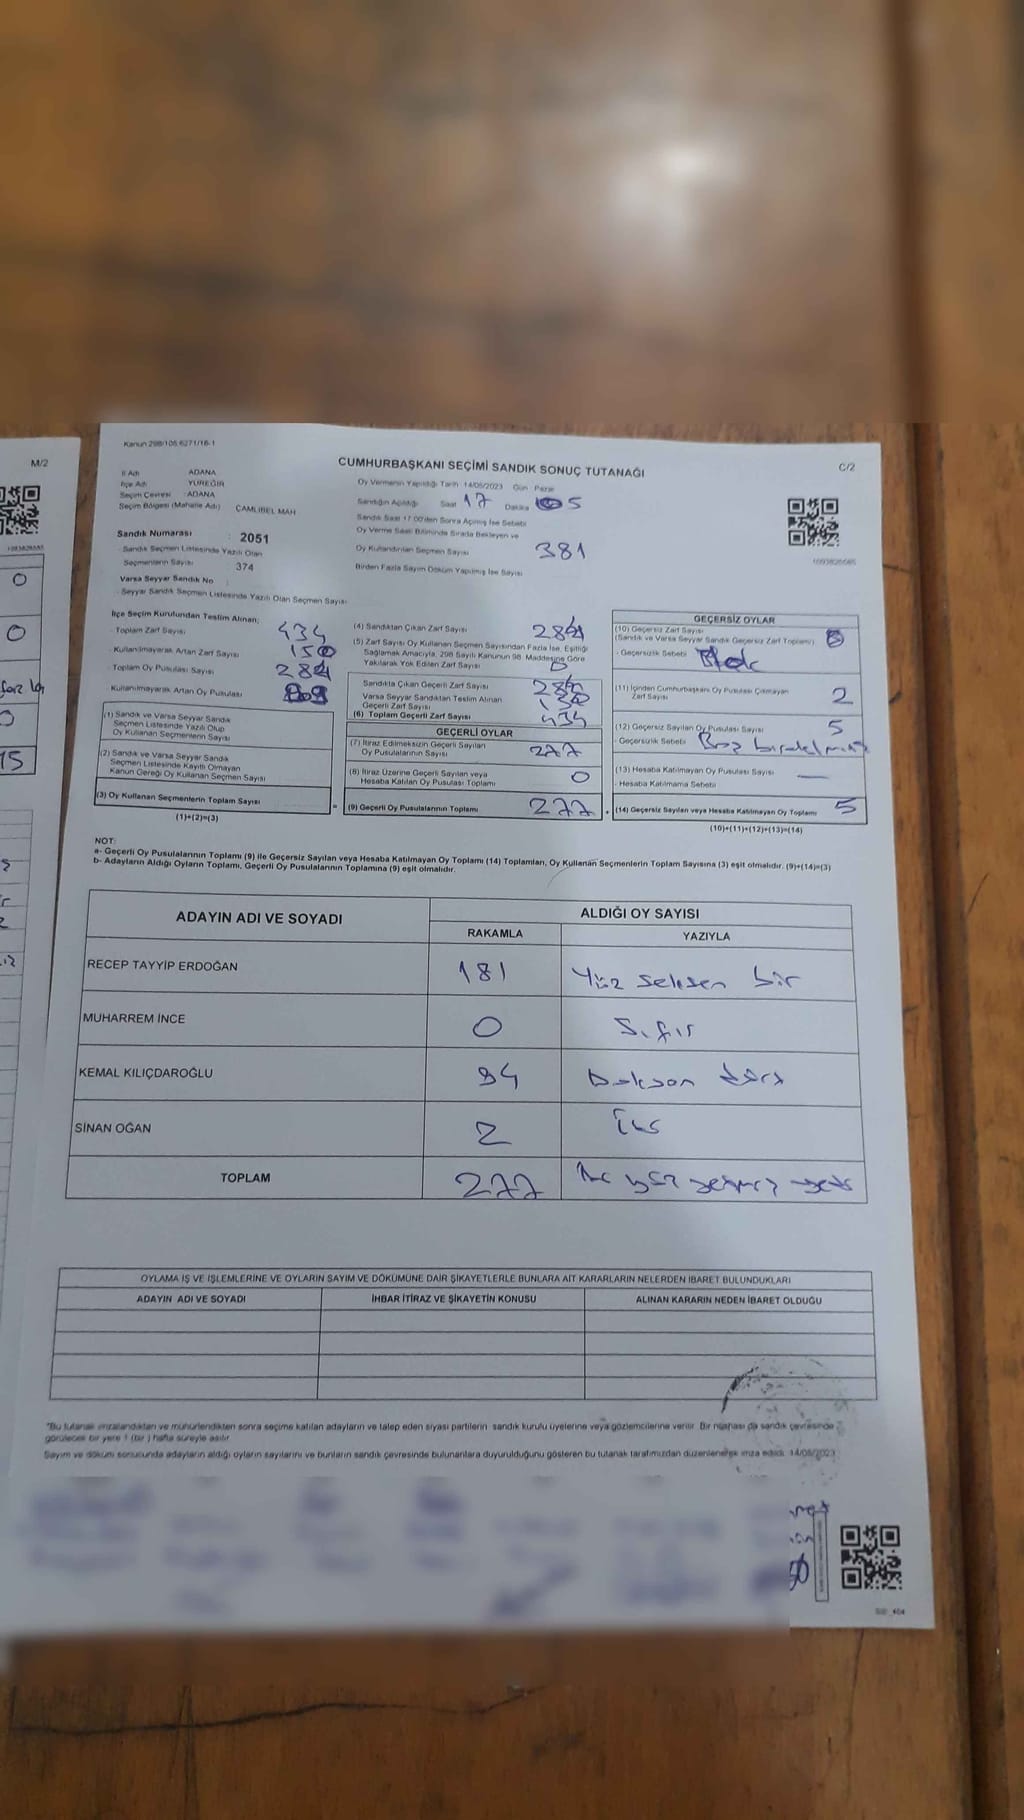 Kanun 298/105 6271/16-1
M/2
CUMHURBAŞKANI SEÇİMİ SANDIK SONUÇ TUTANAĞI
C/2
İl Adı ADANA
İlçe Adı YÜREĞİR
Seçim Çevresi ADANA
Seçim Bölgesi (Mahalle Adı) ÇAMLIBEL MAH
Oy Vermenin Yapıldığı Tarih 14/05/2023 Gün Pazar
Sandığın Açıldığı Saat 17 Dakika 5
Sandık Saat 17.00'den Sonra Açılmış İse Sebebi
Oy Verme Saati Bitiminde Sırada Bekleyen ve
Oy Kullandırılan Seçmen Sayısı 381
Birden Fazla Sayım Döküm Yapılmış İse Sayısı
Sandık Numarası : 2051
Sandık Seçmen Listesinde Yazılı Olan
Seçmenlerin Sayısı 374
Varsa Seyyar Sandık No :
Seyyar Sandık Seçmen Listesinde Yazılı Olan Seçmen Sayısı:
İlçe Seçim Kurulundan Teslim Alınan;
Toplam Zarf Sayısı 434
Kullanılmayarak Artan Zarf Sayısı 150
Toplam Oy Pusulası Sayısı 284
Kullanılmayarak Artan Oy Pusulası
(1) Sandık ve Varsa Seyyar Sandık
Seçmen Listesinde Yazılı Olup
Oy Kullanan Seçmenlerin Sayısı
(2) Sandık ve Varsa Seyyar Sandık
Seçmen Listesinde Kayıtlı Olmayan
Kanun Gereği Oy Kullanan Seçmen Sayısı
(3) Oy Kullanan Seçmenlerin Toplam Sayısı
(1)+(2)=(3)
(4) Sandıktan Çıkan Zarf Sayısı 284
(5) Zarf Sayısı Oy Kullanan Seçmen Sayısından Fazla İse, Eşitliği
Sağlamak Amacıyla, 298 Sayılı Kanunun 98. Maddesine Göre
Yakılarak Yok Edilen Zarf Sayısı 0
Sandıkta Çıkan Geçerli Zarf Sayısı
Varsa Seyyar Sandıktan Teslim Alınan
Geçerli Zarf Sayısı
(6) Toplam Geçerli Zarf Sayısı 434
GEÇERLİ OYLAR
(7) İtiraz Edilmeksizin Geçerli Sayılan
Oy Pusulalarının Sayısı 277
(8) İtiraz Üzerine Geçerli Sayılan veya
Hesaba Katılan Oy Pusulası Toplamı 0
(9) Geçerli Oy Pusulalarının Toplamı 277
GEÇERSİZ OYLAR
(10) Geçersiz Zarf Sayısı
(Sandık ve Varsa Seyyar Sandık Geçersiz Zarf Toplamı)
- Geçersizlik Sebebi
(11) İçinden Cumhurbaşkanı Oy Pusulası Çıkmayan
Zarf Sayısı 2
(12) Geçersiz Sayılan Oy Pusulası Sayısı 5
- Geçersizlik Sebebi
(13) Hesaba Katılmayan Oy Pusulası Sayısı —
- Hesaba Katılmama Sebebi
(14) Geçersiz Sayılan veya Hesaba Katılmayan Oy Toplamı 5
(10)+(11)+(12)+(13)=(14)
NOT:
a- Geçerli Oy Pusulalarının Toplamı (9) ile Geçersiz Sayılan veya Hesaba Katılmayan Oy Toplamı (14) Toplamları, Oy Kullanan Seçmenlerin Toplam Sayısına (3) eşit olmalıdır. (9)+(14)=(3)
b- Adayların Aldığı Oyların Toplamı, Geçerli Oy Pusulalarının Toplamına (9) eşit olmalıdır.
ADAYIN ADI VE SOYADI ALDIĞI OY SAYISI
RAKAMLA YAZIYLA
RECEP TAYYİP ERDOĞAN 181 Yüz seksen bir
MUHARREM İNCE 0 Sıfır
KEMAL KILIÇDAROĞLU 94 Doksan dört
SİNAN OĞAN 2 İki
TOPLAM 277 İki yüz yetmiş yedi
OYLAMA İŞ VE İŞLEMLERİNE VE OYLARIN SAYIM VE DÖKÜMÜNE DAİR ŞİKAYETLERLE BUNLARA AİT KARARLARIN NELERDEN İBARET BULUNDUKLARI
ADAYIN ADI VE SOYADI İHBAR İTİRAZ VE ŞİKAYETİN KONUSU ALINAN KARARIN NEDEN İBARET OLDUĞU
*Bu tutanak imzalandıktan ve mühürlendikten sonra seçime katılan adayların ve talep eden siyasi partilerin sandık kurulu üyelerine veya gözlemcilerine verilir. Bir nüshası da sandık çevresinde
görülecek bir yere 1 (bir ) hafta süreyle asılır.
Sayım ve döküm sonucunda adayların aldığı oyların sayılarını ve bunların sandık çevresinde bulunanlara duyurulduğunu gösteren bu tutanak tarafımızdan düzenlenerek imza edildi. 14/05/2023